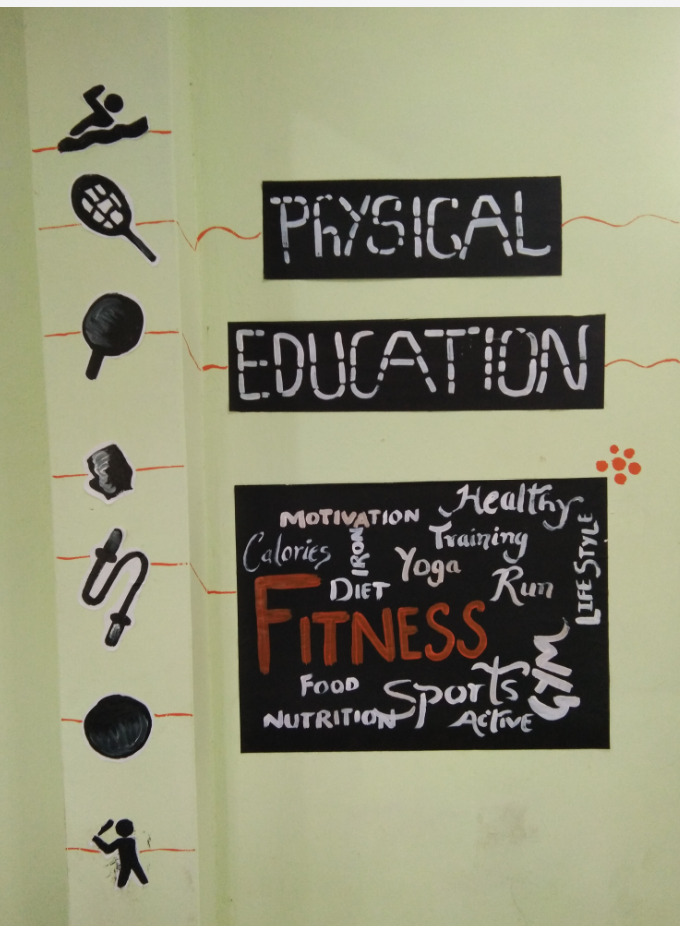 PhYSICAL
EDUCATION
Healthy
MOTIVATION
Training
LIFESTYLE
Calories
IRON
Yoga
DIET
Run
FITNESS
GYM
FOOD
Sports
NUTRITION
ACTIVE